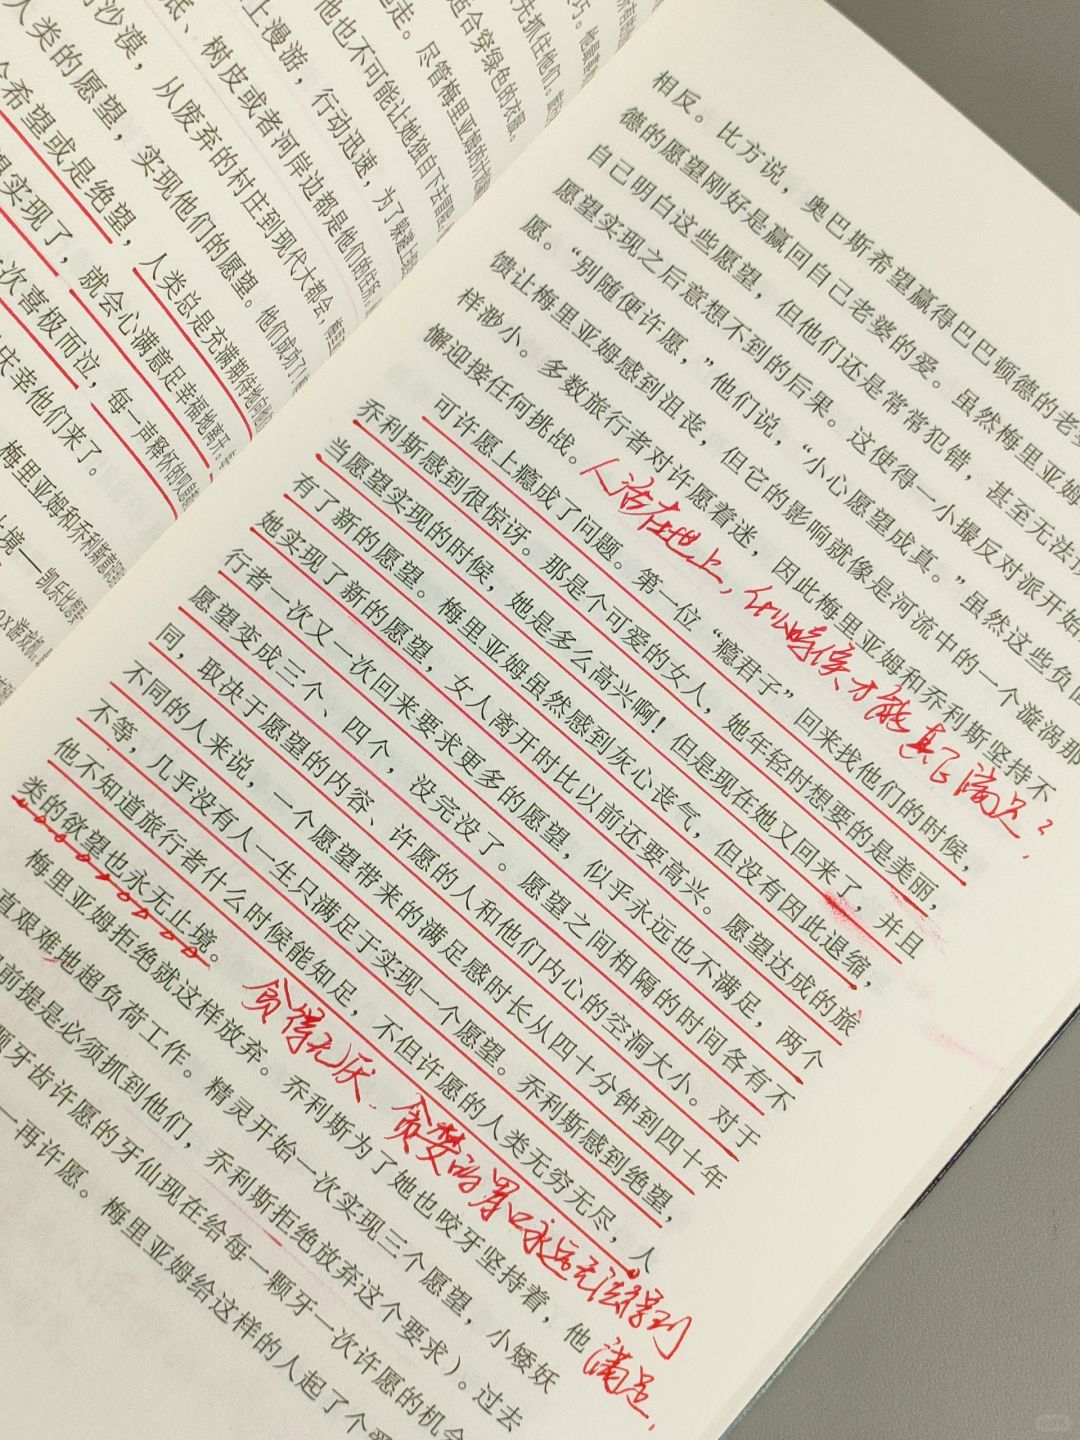 先抓住他们。
适合穿绿色的衣服。
走。尽管梅里亚姆的计划
他也不可能让她独自下去
上漫游，行动迅速，为了躲避
底、树皮或者河岸边都是他们的住所。
沙漠，从废弃的村庄到现代大都会，
人类的愿望，实现他们的愿望。他们成功了！
希望或是绝望，人类总是充满期待地向
望实现了，就会心满意足幸福地离开。
次喜极而泣，每一声释怀的叹息
庆幸他们来了。
梅里亚姆和乔利斯
境——凯乐比
OX游戏机
相反。比方说，奥巴斯希望赢得巴巴顿德的老婆
德的愿望刚好是赢回自己老婆的爱。虽然梅里亚姆
自己明白这些愿望，但他们还是常常犯错，甚至无法预
愿望实现之后意想不到的后果。这使得一小撮反对派开始
愿。“别随便许愿，”他们说，“小心愿望成真。”虽然这些负面
馈让梅里亚姆感到沮丧，但它的影响就像是河流中的一个漩涡那
样渺小。多数旅行者对许愿着迷，因此梅里亚姆和乔利斯坚持不
懈迎接任何挑战。
人活在世上，什么时候才能真正满足？
可许愿上瘾成了问题。第一位“瘾君子”回来找他们的时候，
乔利斯感到很惊讶。那是个可爱的女人，她年轻时想要的是美丽，
当愿望实现的时候，她是多么高兴啊！但是现在她又回来了，并且
有了新的愿望。梅里亚姆虽然感到灰心丧气，但没有因此退缩，
她实现了新的愿望，女人离开时比以前还要高兴。愿望达成的旅
行者一次又一次回来要求更多的愿望，似乎永远也不满足，两个
愿望变成三个、四个，没完没了。愿望之间相隔的时间各有不
同，取决于愿望的内容、许愿的人和他们内心的空洞大小。对于
不同的人来说，一个愿望带来的满足感时长从四十分钟到四十年
不等，几乎没有人一生只满足于实现一个愿望。乔利斯感到绝望，
他不知道旅行者什么时候能知足，不但许愿的人类无穷无尽，人
类的欲望也永无止境。
贪得无厌，贪婪的胃口永远无法得到满足，
梅里亚姆拒绝就这样放弃。乔利斯为了她也咬牙坚持着，他
直艰难地超负荷工作。精灵开始一次实现三个愿望，小矮妖
前提是必须抓到他们，乔利斯拒绝放弃这个要求）。过去
颗牙齿许愿的牙仙现在给每一颗牙一次许愿的机会
一再许愿。梅里亚姆给这样的人起了个